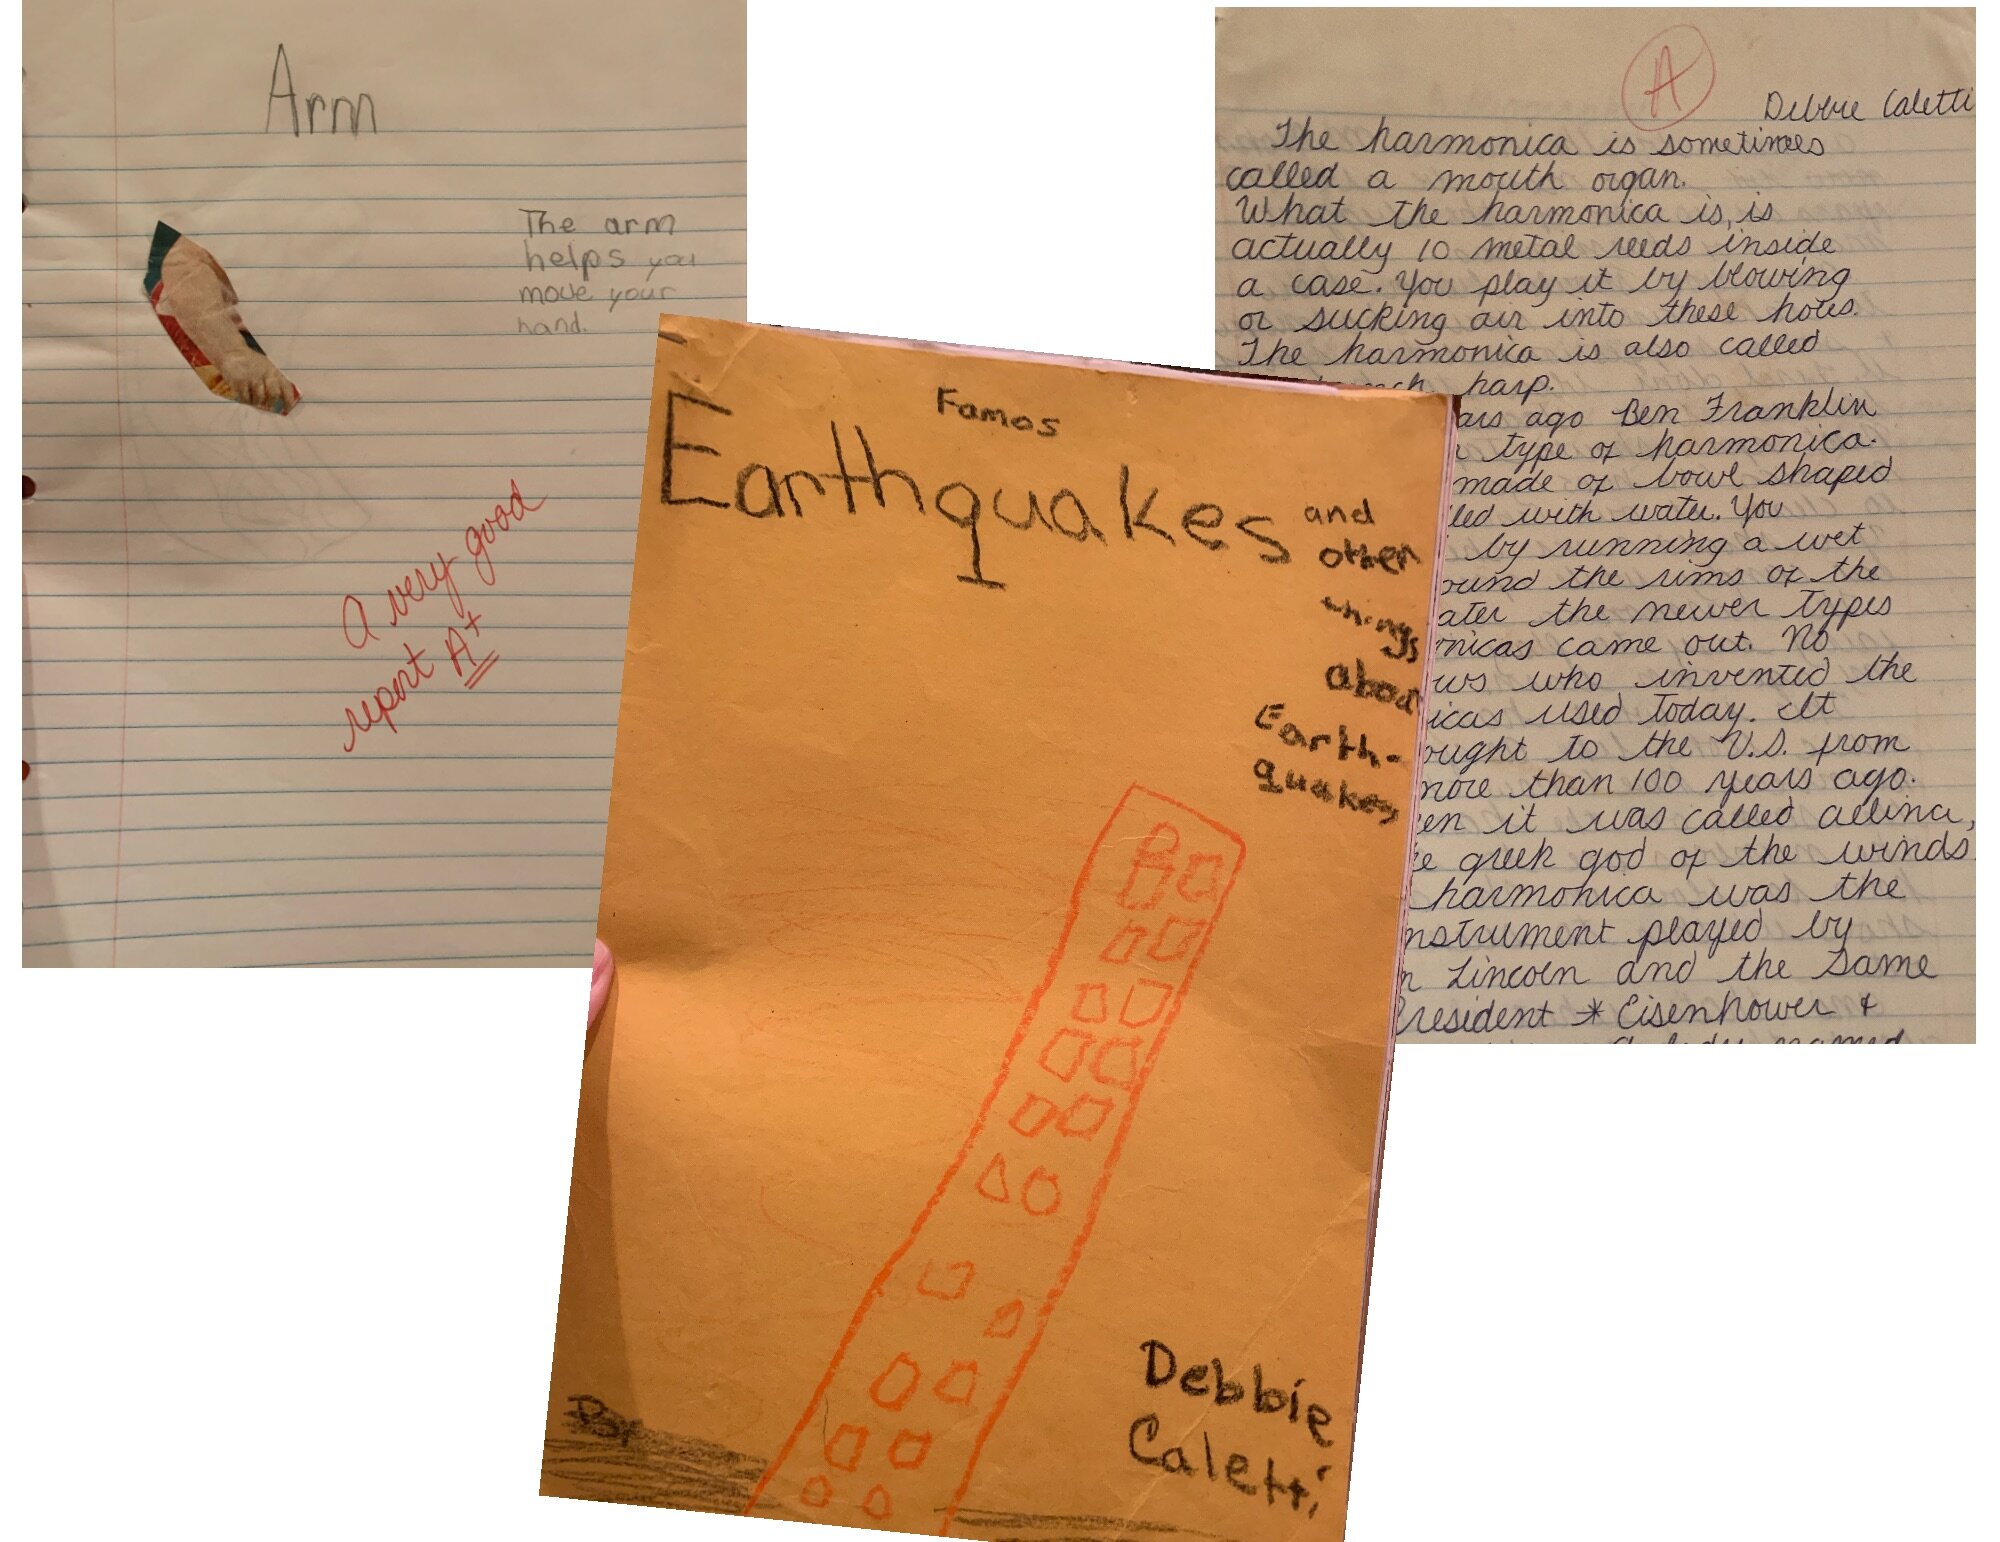 Arm
The arm
helps you
move your
hand.
A very good
report A+
Famos
Earthquakes
and
other
things
about
Earth-
quakes
Debbie
Caletti
A
Debbie Caletti
The harmonica is sometimes
called a mouth organ.
What the harmonica is, is
actually 10 metal reeds inside
a case. You play it by blowing
or sucking air into these holes.
The harmonica is also called
harp.
ago Ben Franklin
type of harmonica.
made of bowl shaped
with water. You
by running a wet
the rims of the
the newer types
came out. No
who invented the
used today. It
to the U.S. from
more than 100 years ago.
it was called aellina,
greek god of the winds
harmonica was the
instrument played by
Lincoln and the same
President * Eisenhower &
a lady named